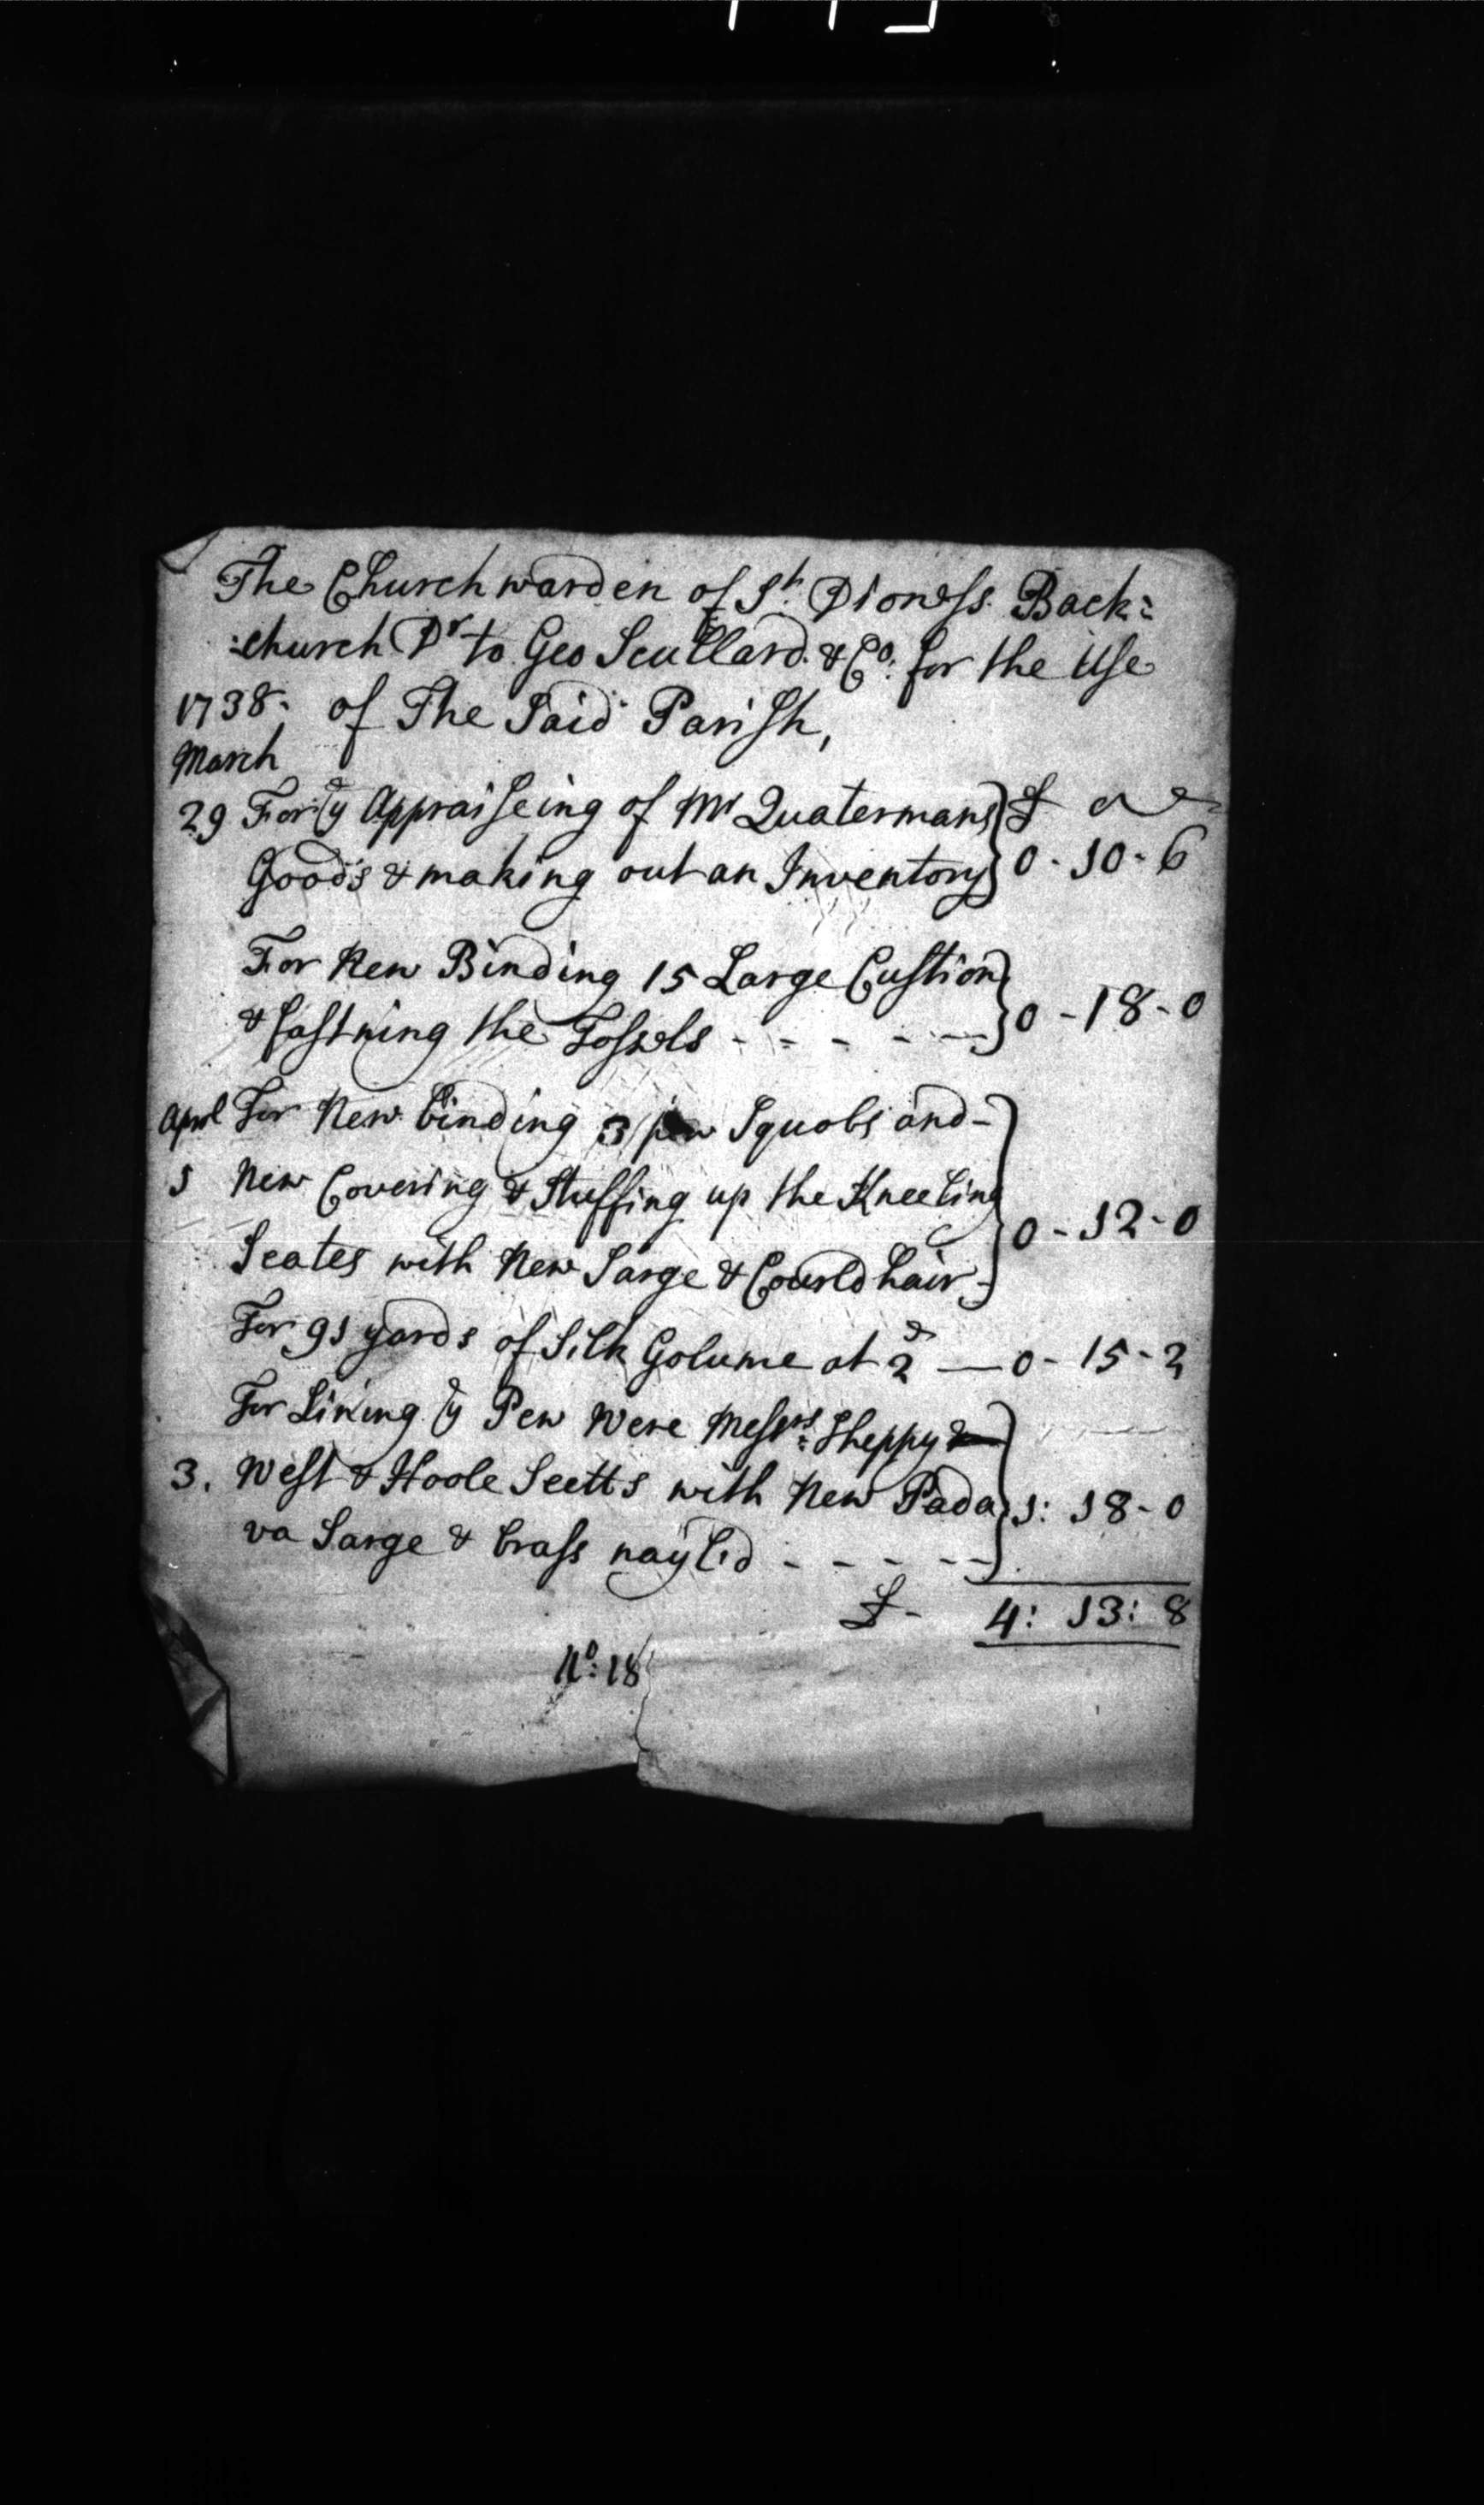 The Churchwarden of St. Dioness Back=
=church Dr to Geo Scullard & Co. for the Use
1738. of The Said Parish,
March
29 For ye Appraiseing of Mr Quatermans £
Goods & making out an Inventory 0-10-6
For New Binding 15 Large Custion
& fastning the Tossels - - - - - 0-18-0
Aprl For New binding 3 pew Squobs and-
1 New Covering & Stuffing up the Kneeling
Seates with New Sarge & Courld hair- 0-12-0
For 91 yards of Silk Golume at 2d — 0-15-2
For Lining ye Pew Were Messrs: Sheppy
3. West & Hoole Seetts with New Pada
va Sarge & brass nayled - - - - - 1:18-0
£- 4:13:8
No:18